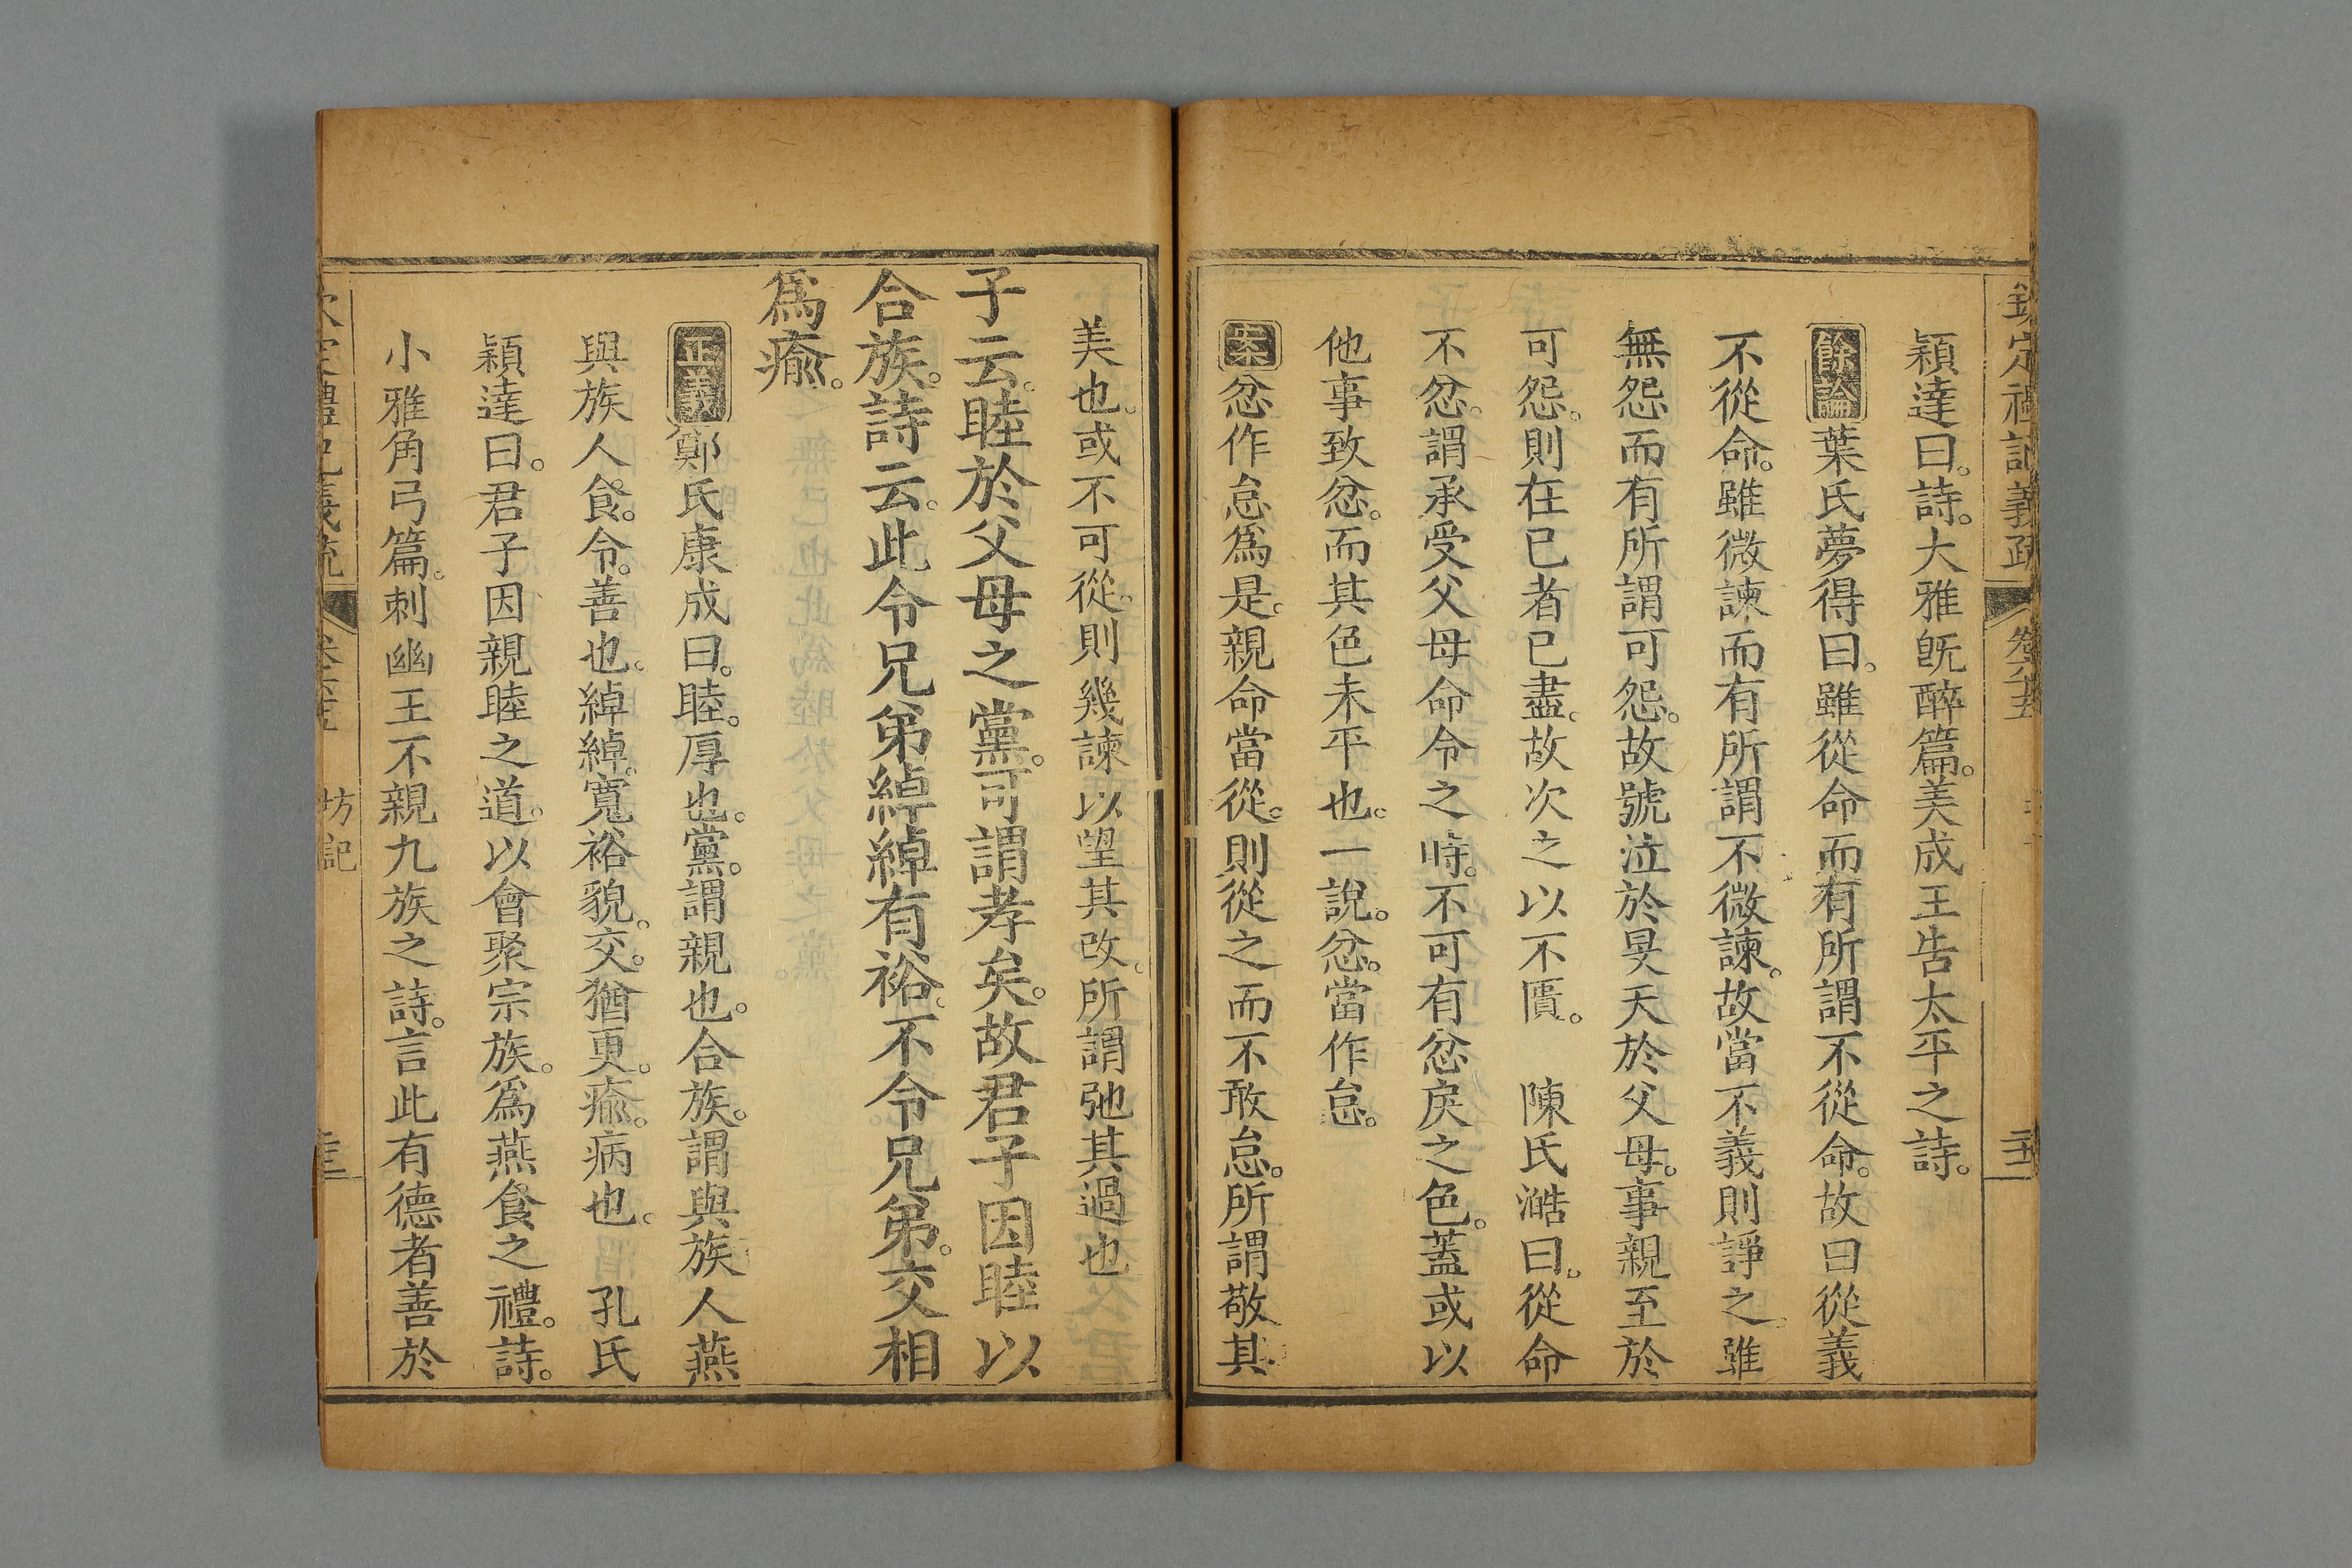 欽定禮記義疏 卷六十五
穎達曰。詩。大雅旣醉篇。美成王告太平之詩。
餘論葉氏夢得曰。雖從命而有所謂不從命。故曰從義
不從命。雖微諫而有所謂不微諫。故當不義則諍之。雖
無怨而有所謂可怨。故號泣於旻天於父母。事親至於
可怨。則在已者已盡。故次之以不匱。 陳氏澔曰。從命
不忿。謂承受父母命令之時。不可有忿戾之色。蓋或以
他事致忿。而其色未平也。一說。忿。當作怠。
案忿作怠爲是。親命當從。則從之而不敢怠。所謂敬其
美也。或不可從。則幾諫以望其改。所謂弛其過也
子云。睦於父母之黨。可謂孝矣。故君子因睦以
合族。詩云。此令兄弟。綽綽有裕。不令兄弟。交相
爲瘉。
正義鄭氏康成曰。睦。厚也。黨。謂親也。合族。謂與族人燕
與族人食。令。善也。綽綽。寬裕貌。交。猶更。瘉。病也。 孔氏
穎達曰。君子因親睦之道。以會聚宗族。爲燕食之禮。詩。
小雅角弓篇。刺幽王不親九族之詩。言此有德者善於
坊記